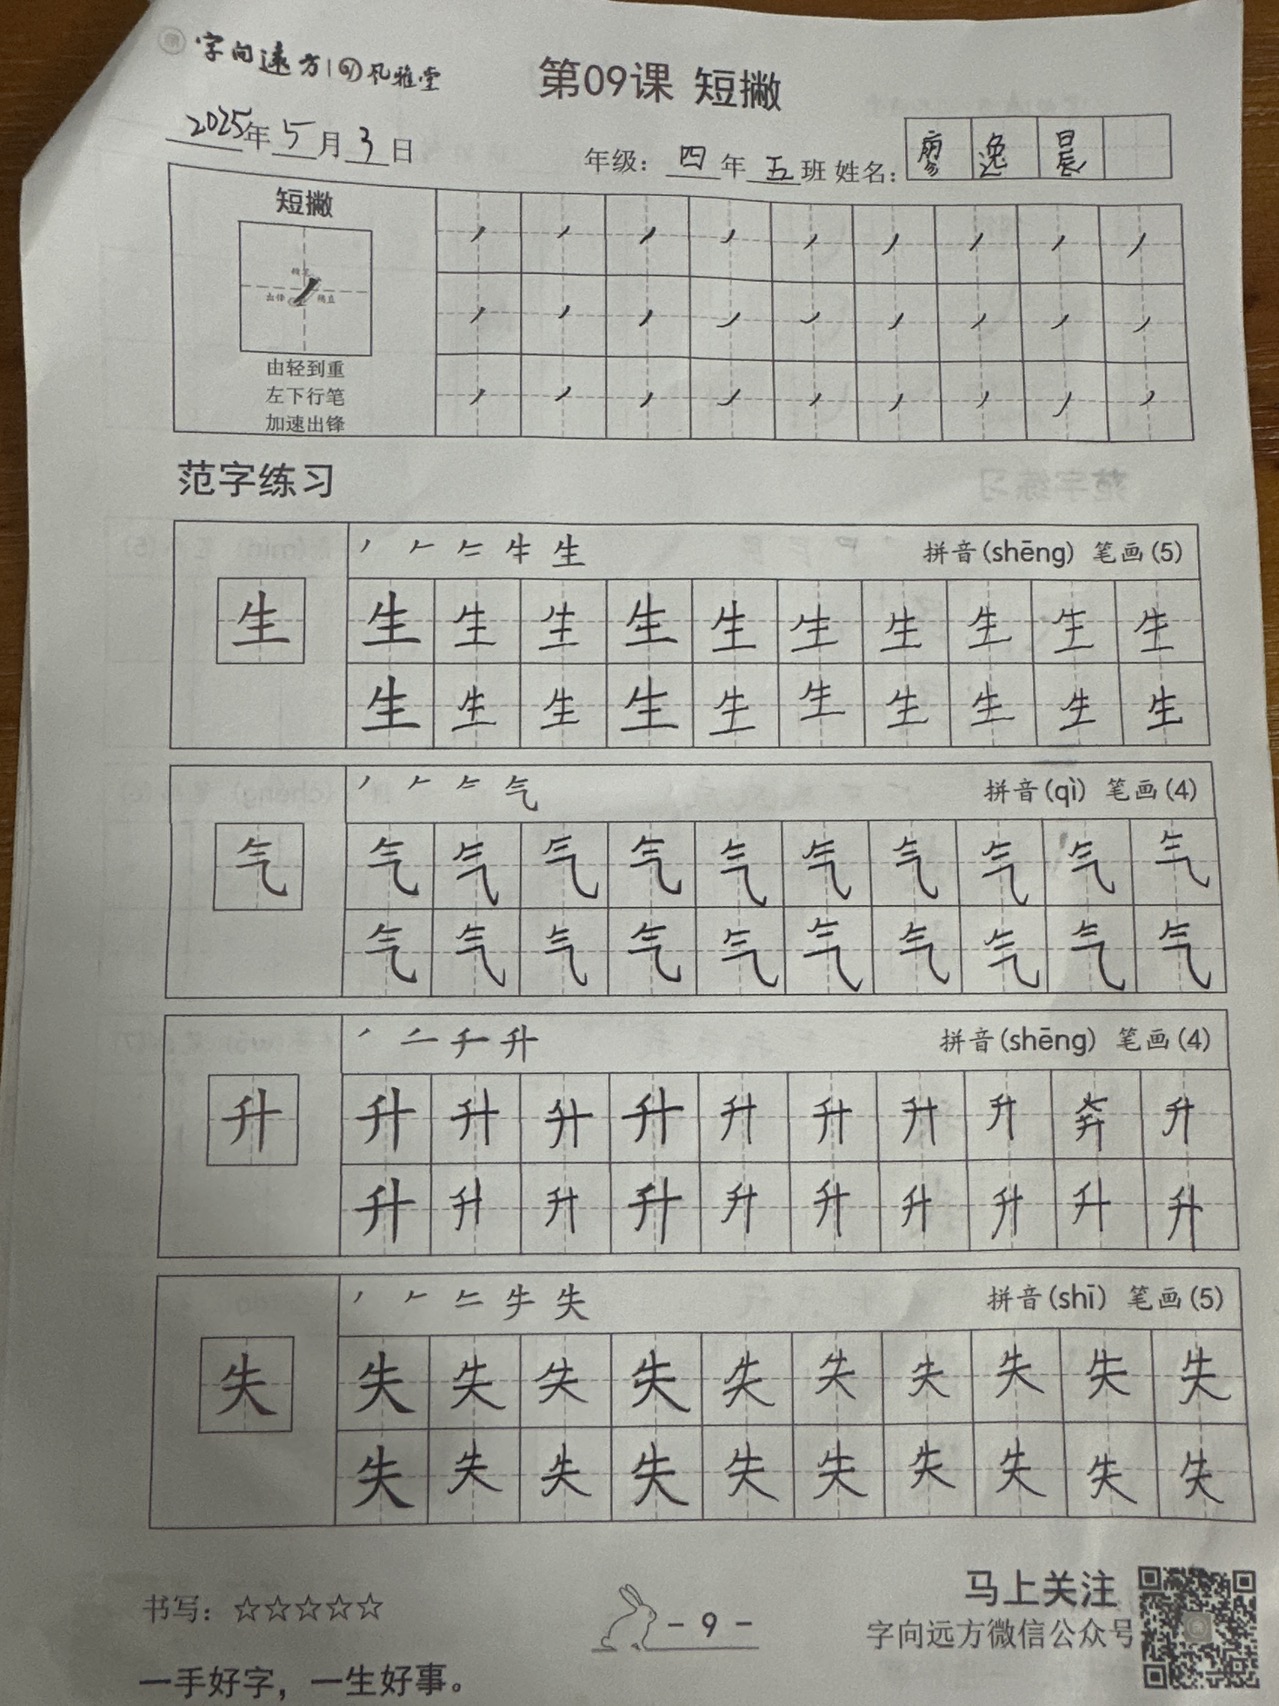 字向远方 风雅堂
第09课 短撇
2025年5月3日
年级：四年五班 姓名：廖逸晨
短撇
由轻到重
左下行笔
加速出锋
范字练习
生 拼音(shēng) 笔画(5)
生 生 生 生 生 生 生 生 生 生 生
生 生 生 生 生 生 生 生 生 生
气 拼音(qì) 笔画(4)
气 气 气 气 气 气 气 气 气 气 气
气 气 气 气 气 气 气 气 气 气
升 拼音(shēng) 笔画(4)
升 升 升 升 升 升 升 升 升 升
升 升 升 升 升 升 升 升 升 升
失 拼音(shī) 笔画(5)
失 失 失 失 失 失 失 失 失 失 失
失 失 失 失 失 失 失 失 失 失
书写：☆☆☆☆☆
- 9 -
马上关注
字向远方微信公众号
一手好字，一生好事。